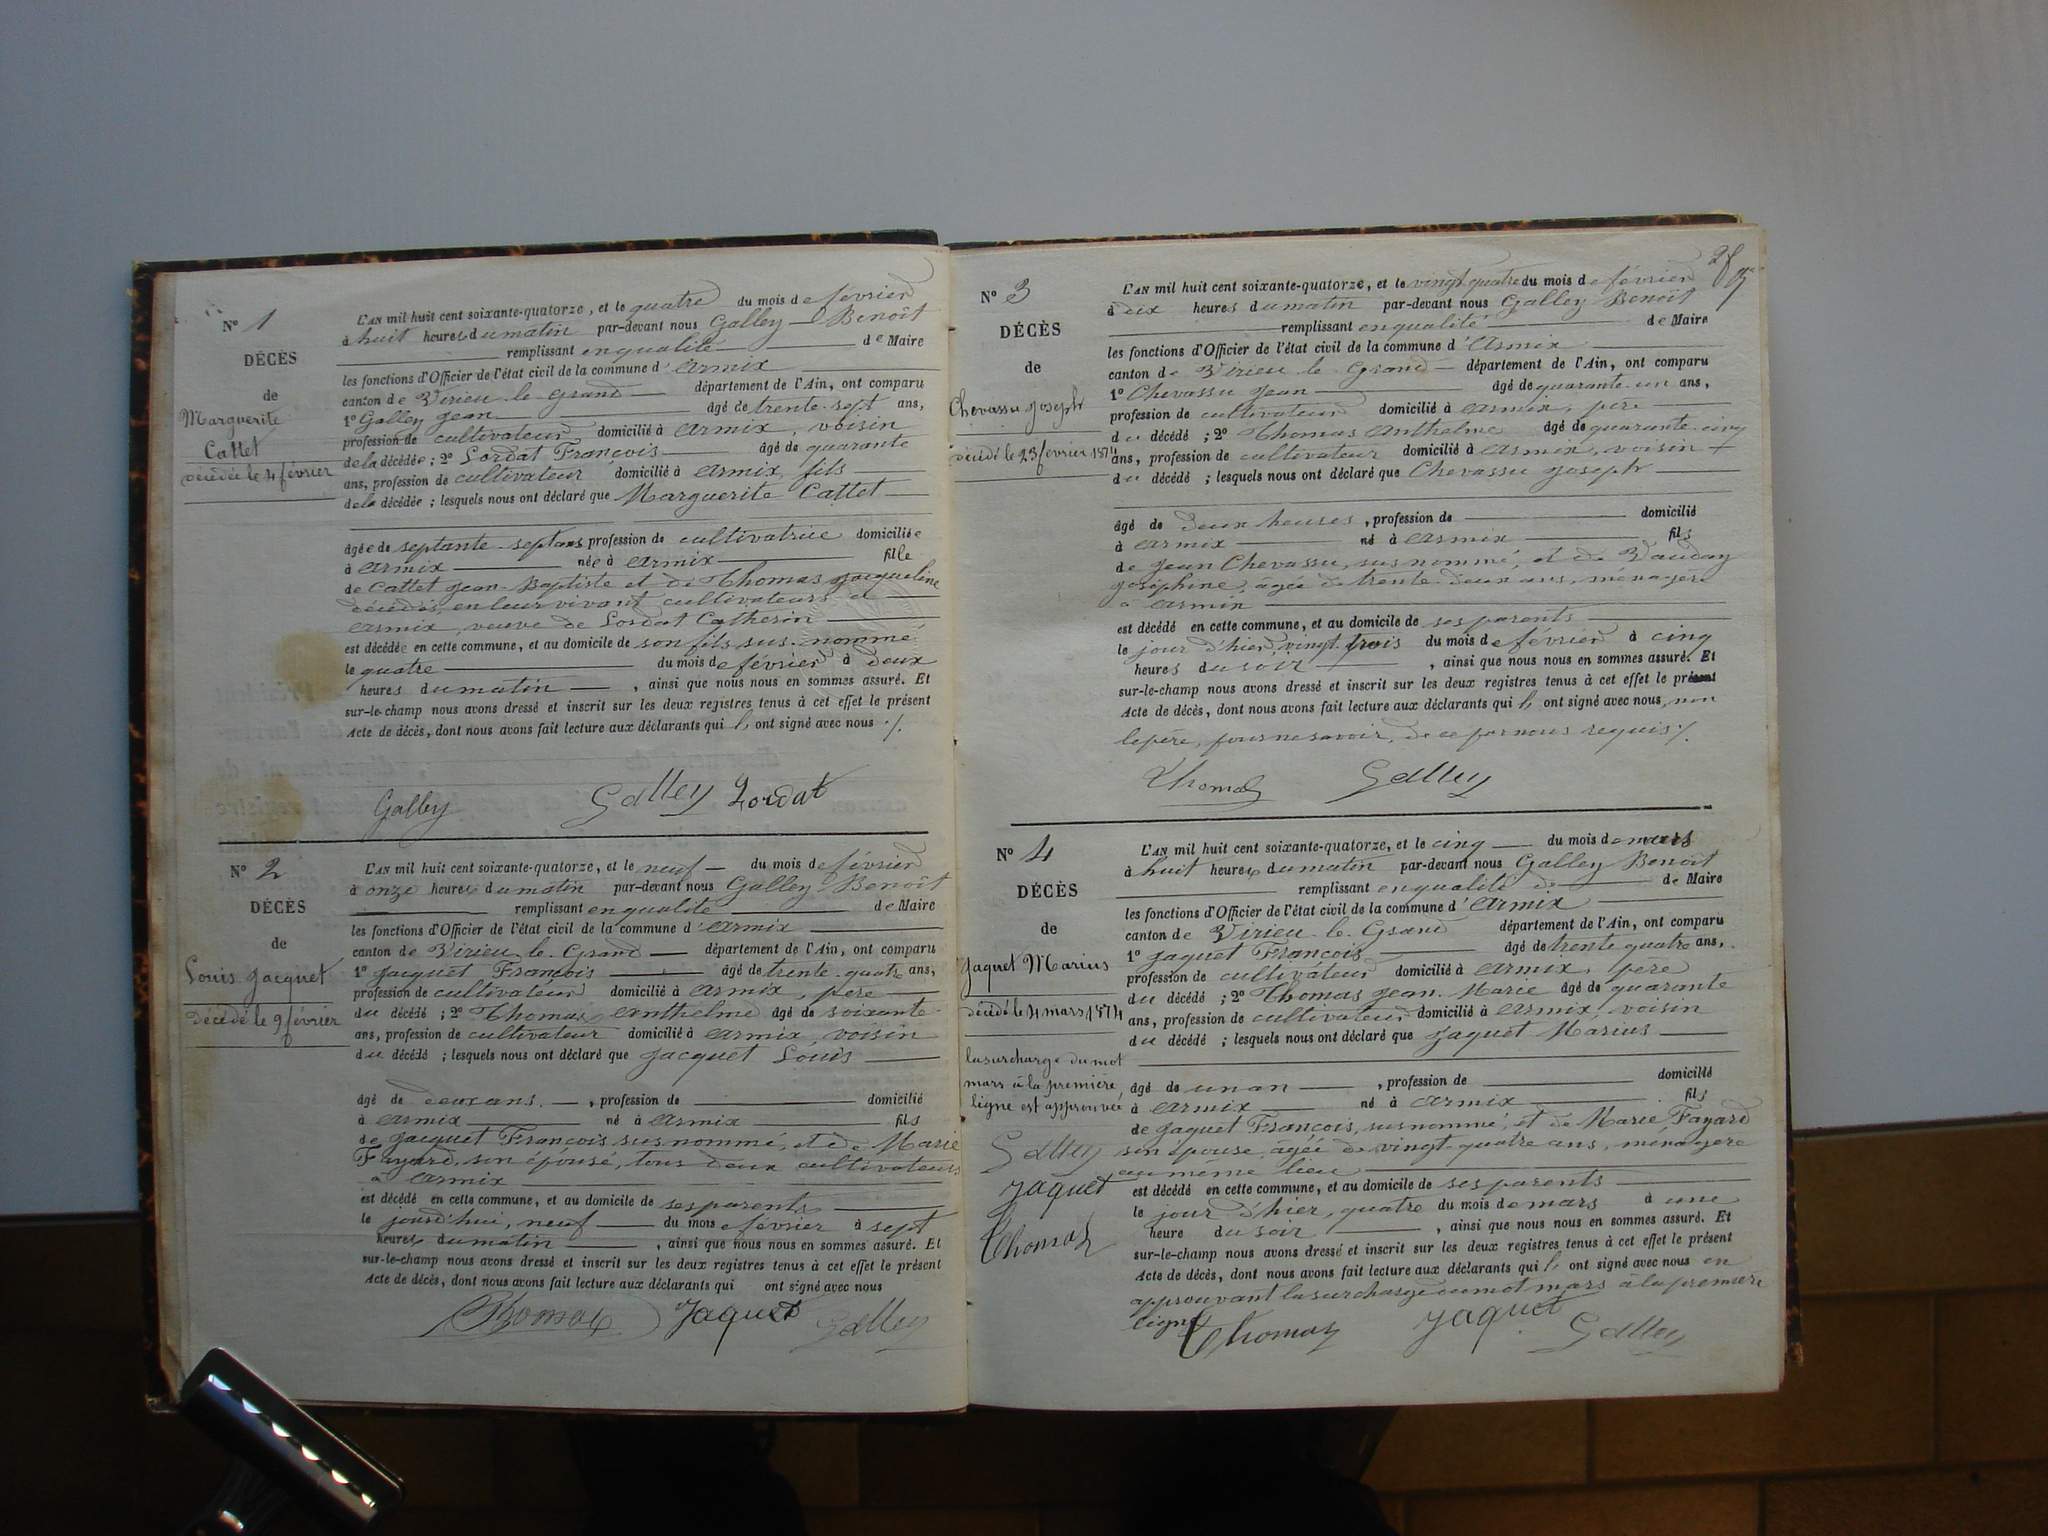 N° 1
DÉCÈS
de
Marguerite
Cattet
décédée le 4 février
L'AN mil huit cent soixante-quatorze, et le quatre du mois de février
à huit heures du matin par-devant nous Galley Benoît
remplissant en qualité de Maire
les fonctions d'Officier de l'état civil de la commune d'Armix
canton de Virieu-le-Grand département de l'Ain, ont comparu
1° Galley Jean âgé de trente-sept ans,
profession de cultivateur domicilié à Armix, voisin
de la décédée ; 2° Lordat François âgé de quarante
ans, profession de cultivateur domicilié à Armix, fils
de la décédée ; lesquels nous ont déclaré que Marguerite Cattet
âgée de septante-sept ans profession de cultivatrice domiciliée
à Armix née à Armix fille
de Cattet Jean-Baptiste et de Thomas Jacqueline
décédés, en leur vivant cultivateurs à
Armix, veuve de Lordat Catherin
est décédée en cette commune, et au domicile de son fils sus-nommé
le quatre du mois de février à deux
heures du matin , ainsi que nous nous en sommes assuré. Et
sur-le-champ nous avons dressé et inscrit sur les deux registres tenus à cet effet le présent
Acte de décès, dont nous avons fait lecture aux déclarants qui ont signé avec nous ./.
Galley Galley Lordat
N° 2
DÉCÈS
de
Louis Jacquet
Décédé le 9 février
L'AN mil huit cent soixante-quatorze, et le neuf du mois de février
à onze heures du matin par-devant nous Galley Benoît
remplissant en qualité de Maire
les fonctions d'Officier de l'état civil de la commune d'Armix
canton de Virieu-le-Grand département de l'Ain, ont comparu
1° Jacquet François âgé de trente-quatre ans,
profession de cultivateur domicilié à Armix, père
du décédé ; 2° Thomas Anthelme âgé de soixante
ans, profession de cultivateur domicilié à Armix, voisin
du décédé ; lesquels nous ont déclaré que Jacquet Louis
âgé de deux ans. , profession de domicilié
à Armix né à Armix fils
de Jacquet François susnommé, et de Marie
Fayard, son épouse, tous deux cultivateurs
à Armix
est décédé en cette commune, et au domicile de ses parents
le jourd'hui, neuf du mois février à sept
heures du matin , ainsi que nous nous en sommes assuré. Et
sur-le-champ nous avons dressé et inscrit sur les deux registres tenus à cet effet le présent
Acte de décès, dont nous avons fait lecture aux déclarants qui ont signé avec nous
Thomas Jaquet Galley
N° 3
DÉCÈS
de
Chevassu Joseph
décédé le 23 février 1874
L'AN mil huit cent soixante-quatorze, et le vingt-quatre du mois de février
à dix heures du matin par-devant nous Galley Benoît
remplissant en qualité de Maire
les fonctions d'Officier de l'état civil de la commune d'Armix
canton de Virieu-le-Grand département de l'Ain, ont comparu
1° Chevassu Jean âgé de quarante-un ans,
profession de cultivateur domicilié à Armix, père
du décédé ; 2° Thomas Anthelme âgé de quarante-cinq
ans, profession de cultivateur domicilié à Armix, voisin
du décédé ; lesquels nous ont déclaré que Chevassu Joseph
âgé de deux heures , profession de domicilié
à Armix né à Armix fils
de Jean Chevassu, susnommé, et de Vauday
Joséphine, âgée de trente-deux ans, ménagère
à Armix
est décédé en cette commune, et au domicile de ses parents
le jour d'hier, vingt-trois du mois de février à cinq
heures du soir , ainsi que nous nous en sommes assuré. Et
sur-le-champ nous avons dressé et inscrit sur les deux registres tenus à cet effet le présent
Acte de décès, dont nous avons fait lecture aux déclarants qui ont signé avec nous, non
le père, pour ne savoir, de ce par nous requis ./.
Thomas Galley
N° 4
DÉCÈS
de
Jaquet Marius
décédé le 4 mars 1874
la surcharge du mot
mars à la première
ligne est approuvée
Galley
Jaquet
Thomas
L'AN mil huit cent soixante-quatorze, et le cinq du mois de mars
à huit heures du matin par-devant nous Galley Benoît
remplissant en qualité de de Maire
les fonctions d'Officier de l'état civil de la commune d'Armix
canton de Virieu-le-Grand département de l'Ain, ont comparu
1° Jaquet François âgé de trente-quatre ans,
profession de cultivateur domicilié à Armix, père
du décédé ; 2° Thomas Jean-Marie âgé de quarante
ans, profession de cultivateur domicilié à Armix, voisin
du décédé ; lesquels nous ont déclaré que Jaquet Marius
âgé de un an , profession de domicilié
à Armix né à Armix fils
de Jaquet François, susnommé, et de Marie Fayard
son épouse, âgée de vingt-quatre ans, ménagère
au même lieu
est décédé en cette commune, et au domicile de ses parents
le jour d'hier, quatre du mois de mars à une
heure du soir , ainsi que nous nous en sommes assuré. Et
sur-le-champ nous avons dressé et inscrit sur les deux registres tenus à cet effet le présent
Acte de décès, dont nous avons fait lecture aux déclarants qui ont signé avec nous en
approuvant la surcharge du mot mars à la première
ligne
Thomas Jaquet Galley